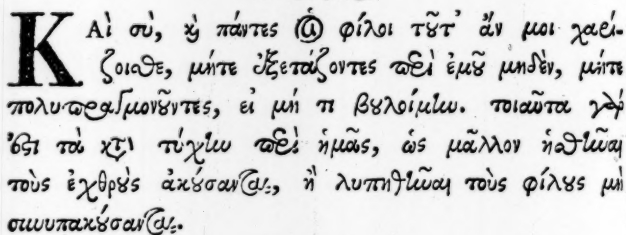 Καὶ σὺ, καὶ πάντες ὦ φίλοι τοῦτ' ἄν μοι χαρί-
ζοισθε, μήτε ἐξετάζοντες περὶ ἐμοῦ μηδὲν, μήτε
πολυπραγμονοῦντες, εἰ μή τι βουλοίμην. τοιαῦτα γάρ
ἐστι τὰ κατὰ τύχην περὶ ἡμᾶς, ὡς μᾶλλον ἡσθῆναι
τοὺς ἐχθροὺς ἀκούσαντας, ἢ λυπηθῆναι τοὺς φίλους μὴ
συνυπακούσαντας.